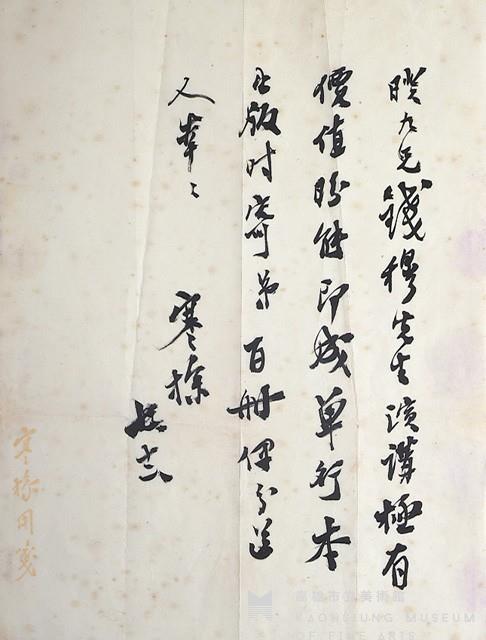 九兄錢穆先生演講極有
價值盼能即成單行本
出版时寄弟百冊俾分送
人幸〻
寒操
寒操用箋
高雄市立美術館
KAOHSIUNG MUSEUM
OF FINE ARTS